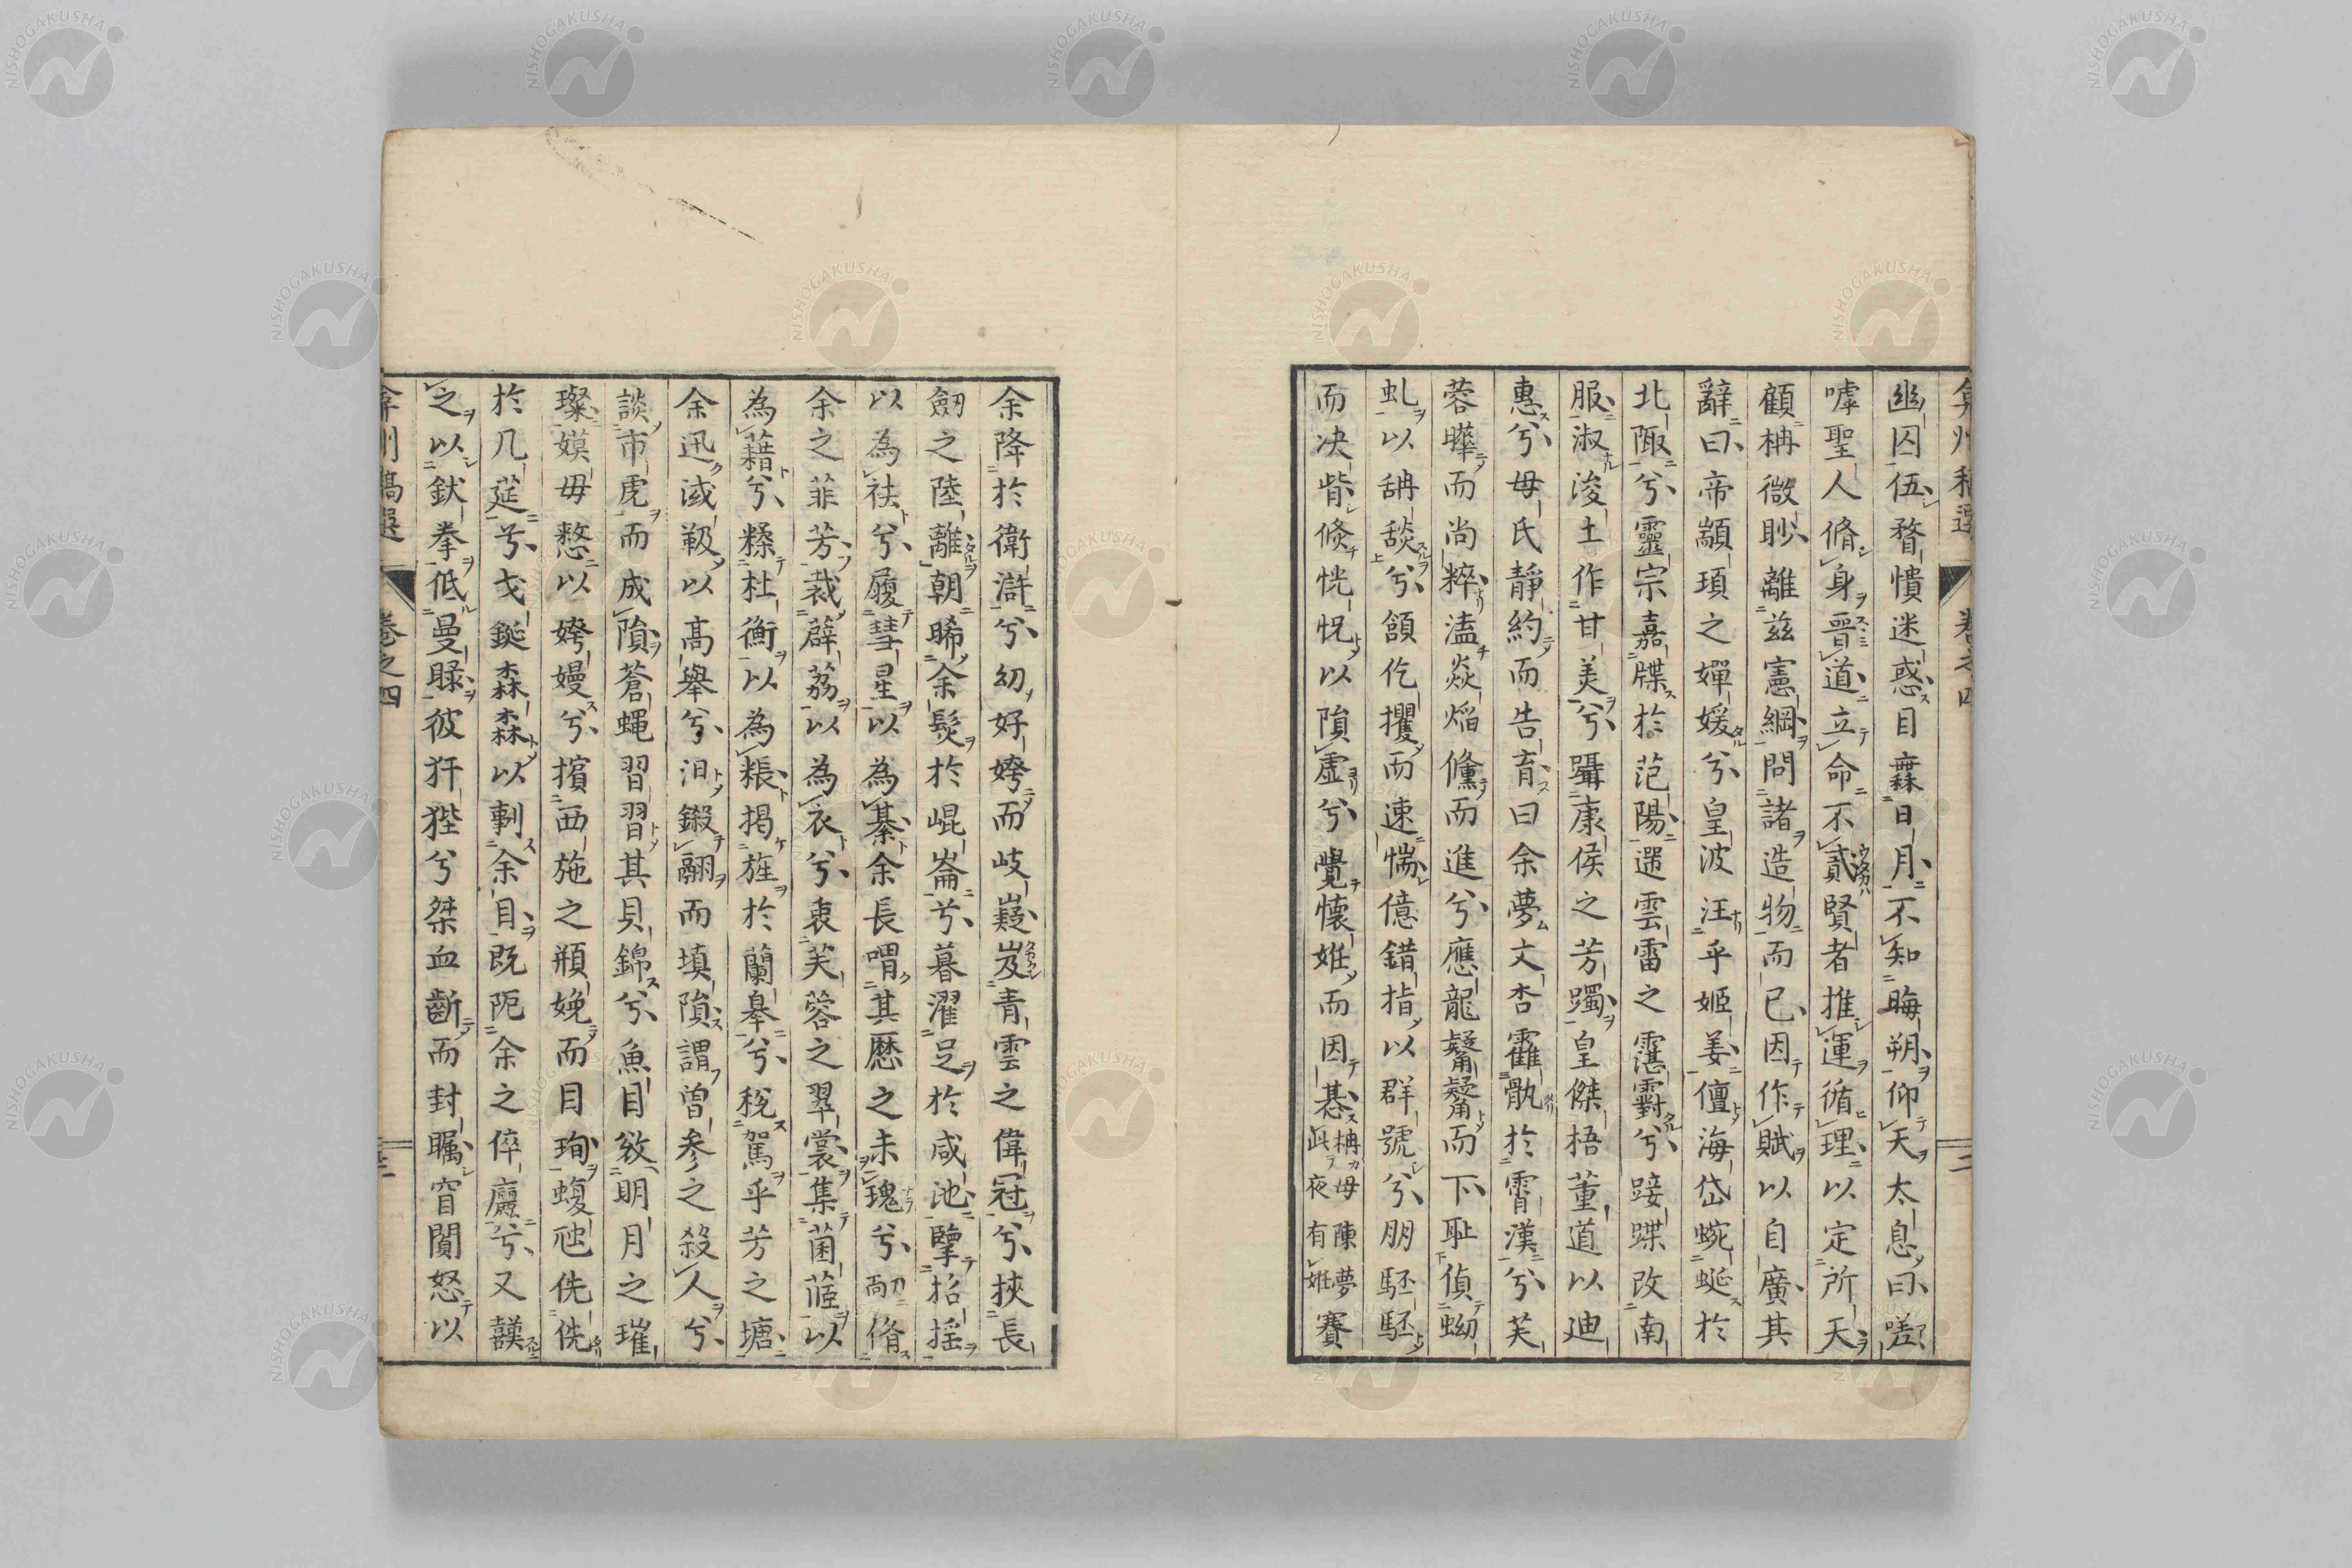 幽囚伍瞀憒迷惑目霾日月不知晦朔仰天太息曰嗟
嘑聖人脩身晉道立命不貳賢者推運循理以定所天
顧柟微眇離兹憲綱問諸造物而已因作賦以自廣其
辭曰帝顓頊之嬋媛兮皇波汪乎姬姜儃海岱蜿蜒於
北陬兮靈宗嘉牒於范陽遝雲雷之䨴䨴兮踥蹀改南
服淑浚土作甘美兮躡康侯之芳躅皇傑梧董道以廸
惠兮母氏靜約而告育曰余夢丈杏靃骩於霄漢兮芙
蓉曄而尚粹溘焱焰儵而進兮應龍鬣而下耻偵蚴
虬以䛁舕兮頷仡攫而速惴億錯指以群號兮朋駓駓
而决眥倏恍怳以隕虛兮覺懷姙而因惎柟母陳夢此夜有姙賽
余降於衛滸兮幼好姱而岐嶷岌青雲之偉冠兮挾長
劔之陸離朝晞余髮於崐崙兮暮濯足於咸池擥招搖
以為袪兮履彗星以為綦余長喟其歷之未瑰兮刷脩
余之菲芳裁薜荔以為衣兮衷芙蓉之翠裳集菌蓙以
為藉兮糅杜衡以為粻揭旌於蘭皋兮稅駕乎芳之塘
余迅淢靸以高舉兮汨鍛翮而填隕謂曾參之殺人兮
談市虎而成隕蒼蝇習習其貝錦兮魚目敚明月之璀
璨嫫毋憗以姱嫚兮擯西施之頩娩而目珣蝮虺侁侁
於几筵兮戈鋋森森以剚余目既阨余之倅廬兮又謨
之以鈇拳低曼睩彼犴狴兮桀血齗而封矚窅閴怒以
弇州稿選
卷之四
二